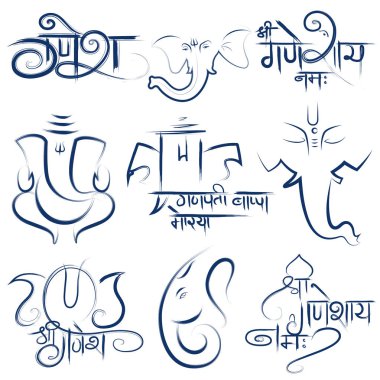 गणेश
श्री गणेशाय
नमः
गणपती बाप्पा
मोरया
श्री गणेश
श्री गणेशाय
नमः